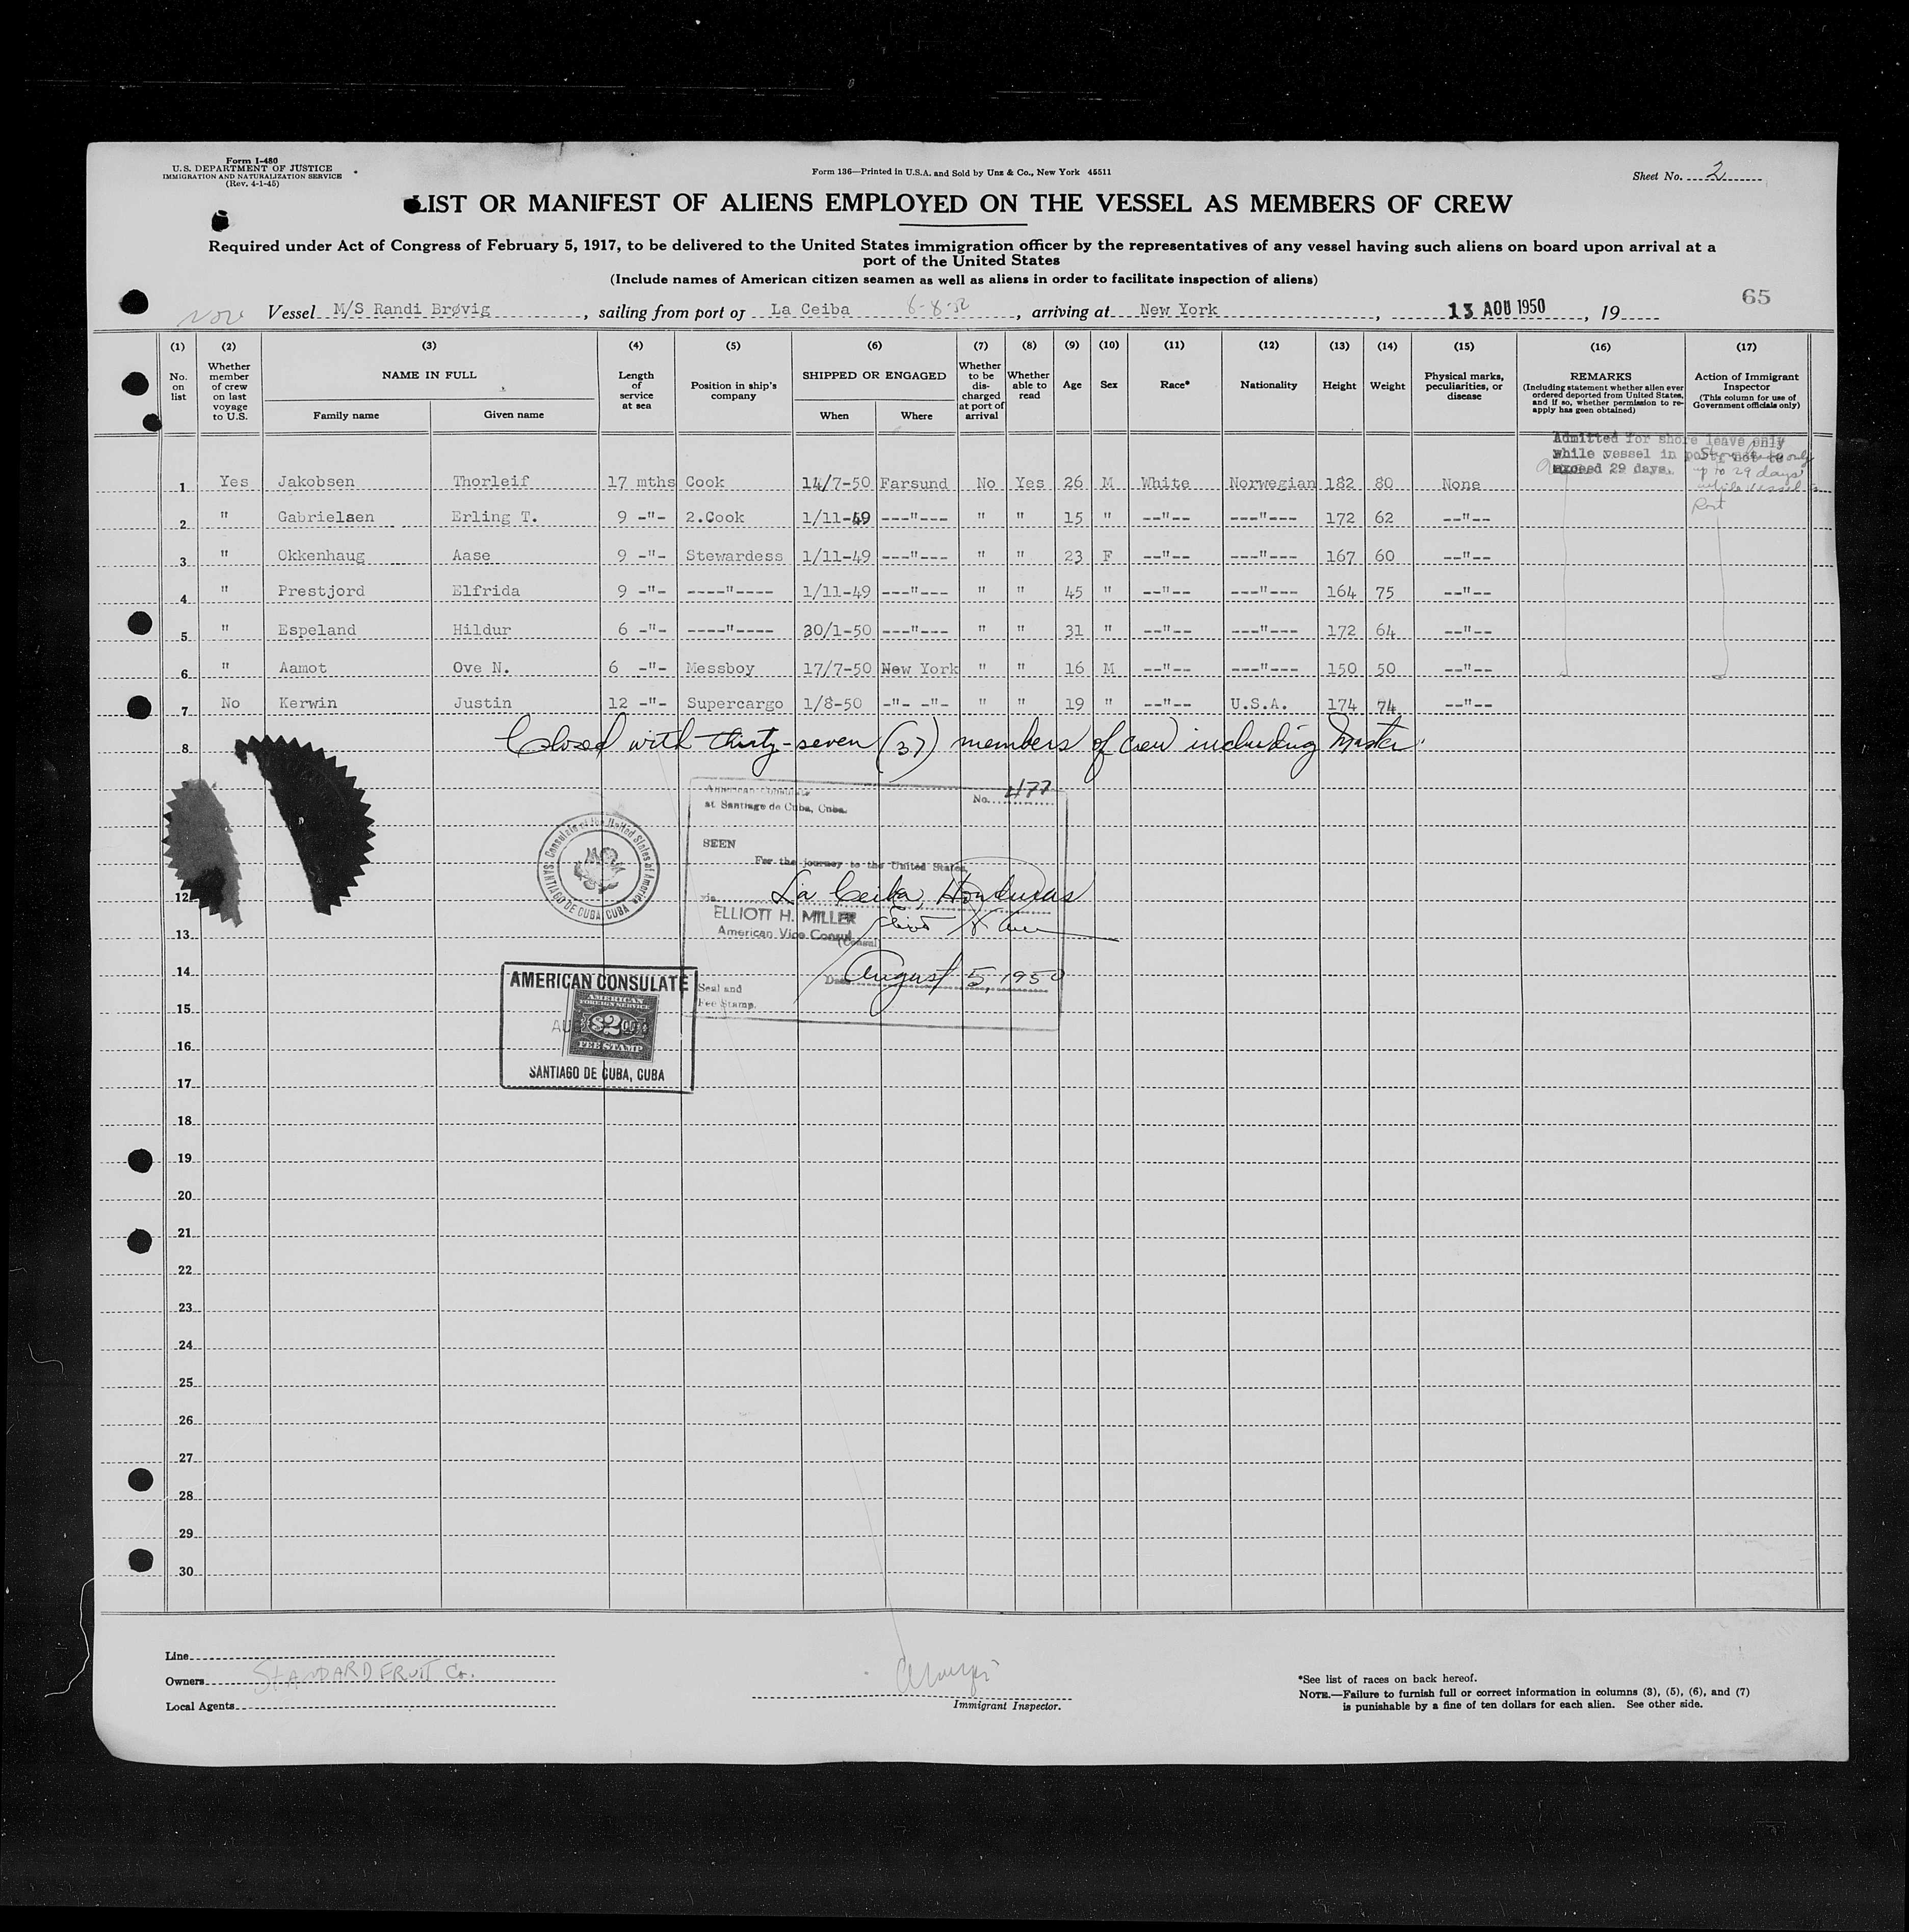 Form I-480
U.S. DEPARTMENT OF JUSTICE
IMMIGRATION AND NATURALIZATION SERVICE
(Rev. 4-1-45)
Form 136—Printed in U.S.A. and Sold by Unz & Co., New York 45511
Sheet No. 2
LIST OR MANIFEST OF ALIENS EMPLOYED ON THE VESSEL AS MEMBERS OF CREW
Required under Act of Congress of February 5, 1917, to be delivered to the United States immigration officer by the representatives of any vessel having such aliens on board upon arrival at a
port of the United States
(Include names of American citizen seamen as well as aliens in order to facilitate inspection of aliens)
65
Nor Vessel M/S Randi Brøvig, sailing from port of La Ceiba 6-8-50, arriving at New York, 13 AOU 1950, 19
(1) (2) (3) (4) (5) (6) (7) (8) (9) (10) (11) (12) (13) (14) (15) (16) (17)
No. on list
Whether member of crew on last voyage to U.S.
NAME IN FULL
Family name
Given name
Length of service at sea
Position in ship's company
SHIPPED OR ENGAGED
When
Where
Whether to be discharged at port of arrival
Whether able to read
Age
Sex
Race*
Nationality
Height
Weight
Physical marks, peculiarities, or disease
REMARKS
(Including statement whether alien ever ordered deported from United States, and if so, whether permission to re-apply has geen obtained)
Action of Immigrant Inspector
(This column for use of Government officials only)
Admitted for shore leave only
while vessel in port, not to
exceed 29 days.
only
up to 29 days
while vessel in
Port
1 Yes Jakobsen Thorleif 17 mths Cook 14/7-50 Farsund No Yes 26 M White Norwegian 182 80 None
2 " Gabrielsen Erling T. 9 -"- 2.Cook 1/11-49 ---"--- " " 15 " --"-- ---"--- 172 62 --"--
3 " Okkenhaug Aase 9 -"- Stewardess 1/11-49 ---"--- " " 23 F --"-- ---"--- 167 60 --"--
4 " Prestjord Elfrida 9 -"- ----"---- 1/11-49 ---"--- " " 45 " --"-- ---"--- 164 75 --"--
5 " Espeland Hildur 6 -"- ----"---- 30/1-50 ---"--- " " 31 " --"-- ---"--- 172 64 --"--
6 " Aamot Ove N. 6 -"- Messboy 17/7-50 New York " " 16 M --"-- ---"--- 150 50 --"--
7 No Kerwin Justin 12 -"- Supercargo 1/8-50 -"- -"- " " 19 " --"-- U.S.A. 174 74 --"--
Closed with thirty-seven (37) members of crew including Master.
8
American Consulate
at Santiago de Cuba, Cuba.
No. 477
SEEN
For the journey to the United States,
via La Ceiba, Honduras
ELLIOTT H. MILLER
American Vice Consul
(Consul)
Date August 5, 1950
Seal and
Fee Stamp.
Consulate of the United States of America
SANTIAGO DE CUBA, CUBA
AMERICAN CONSULATE
AMERICAN
FOREIGN SERVICE
$2.00
FEE STAMP
SANTIAGO DE CUBA, CUBA
12
13
14
15
16
17
18
19
20
21
22
23
24
25
26
27
28
29
30
Line
Owners STANDARD FRUIT Co.
Local Agents
Immigrant Inspector.
*See list of races on back hereof.
NOTE.—Failure to furnish full or correct information in columns (3), (5), (6), and (7)
is punishable by a fine of ten dollars for each alien. See other side.